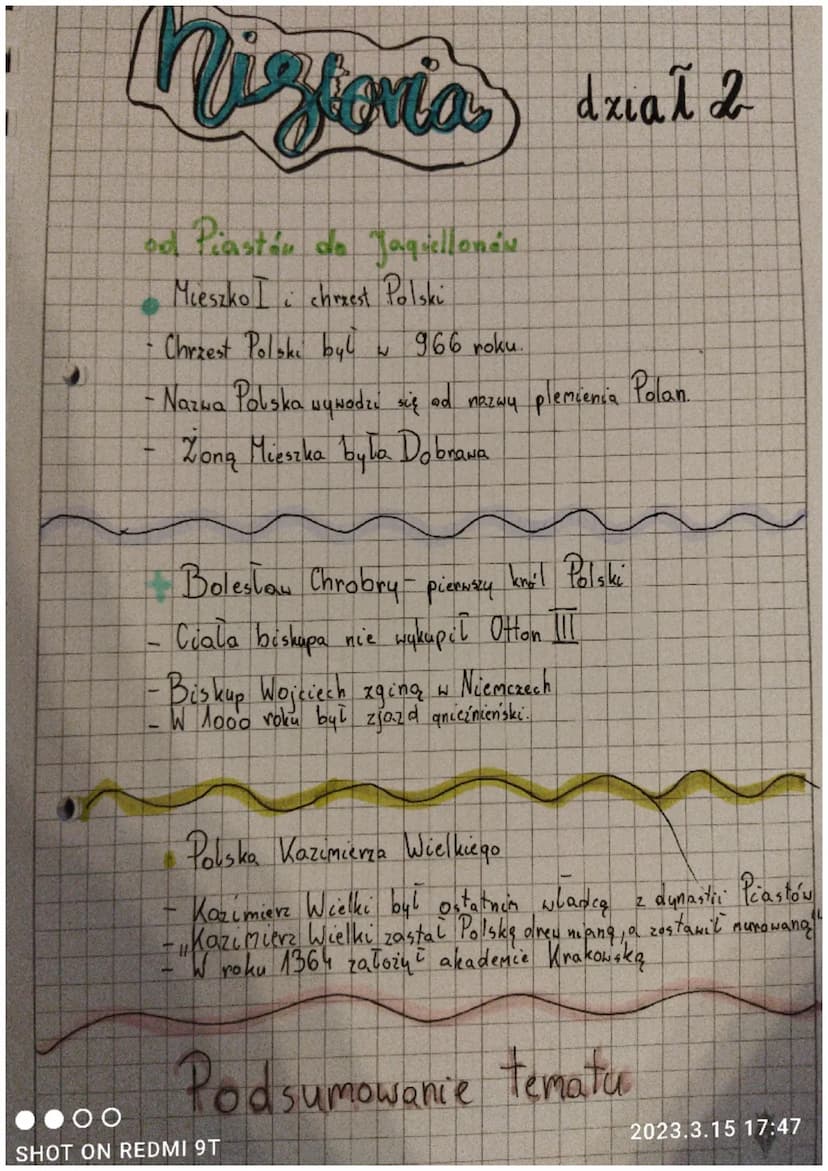 historia
dział 2
od Piastów do Jagiellonów
Mieszko I i chrzest Polski
- Chrzest Polski był w 966 roku.
- Nazwa Polska wywodzi się od nazwy plemienia Polan.
- Żoną Mieszka była Dobrawa
Bolesław Chrobry - pierwszy król Polski
- Ciała biskupa nie wykupił Otton III
- Biskup Wojciech zginą w Niemczech
- W 1000 roku był zjazd gnieźnieński.
Polska Kazimierza Wielkiego
- Kazimierz Wielki był ostatnim władcą z dynastii Piastów
- „Kazimierz Wielki zastał Polskę drewnianą, a zostawił murowaną"
- W roku 1364 założył akademie Krakowską
Podsumowanie tematu
SHOT ON REDMI 9T
2023.3.15 17:47